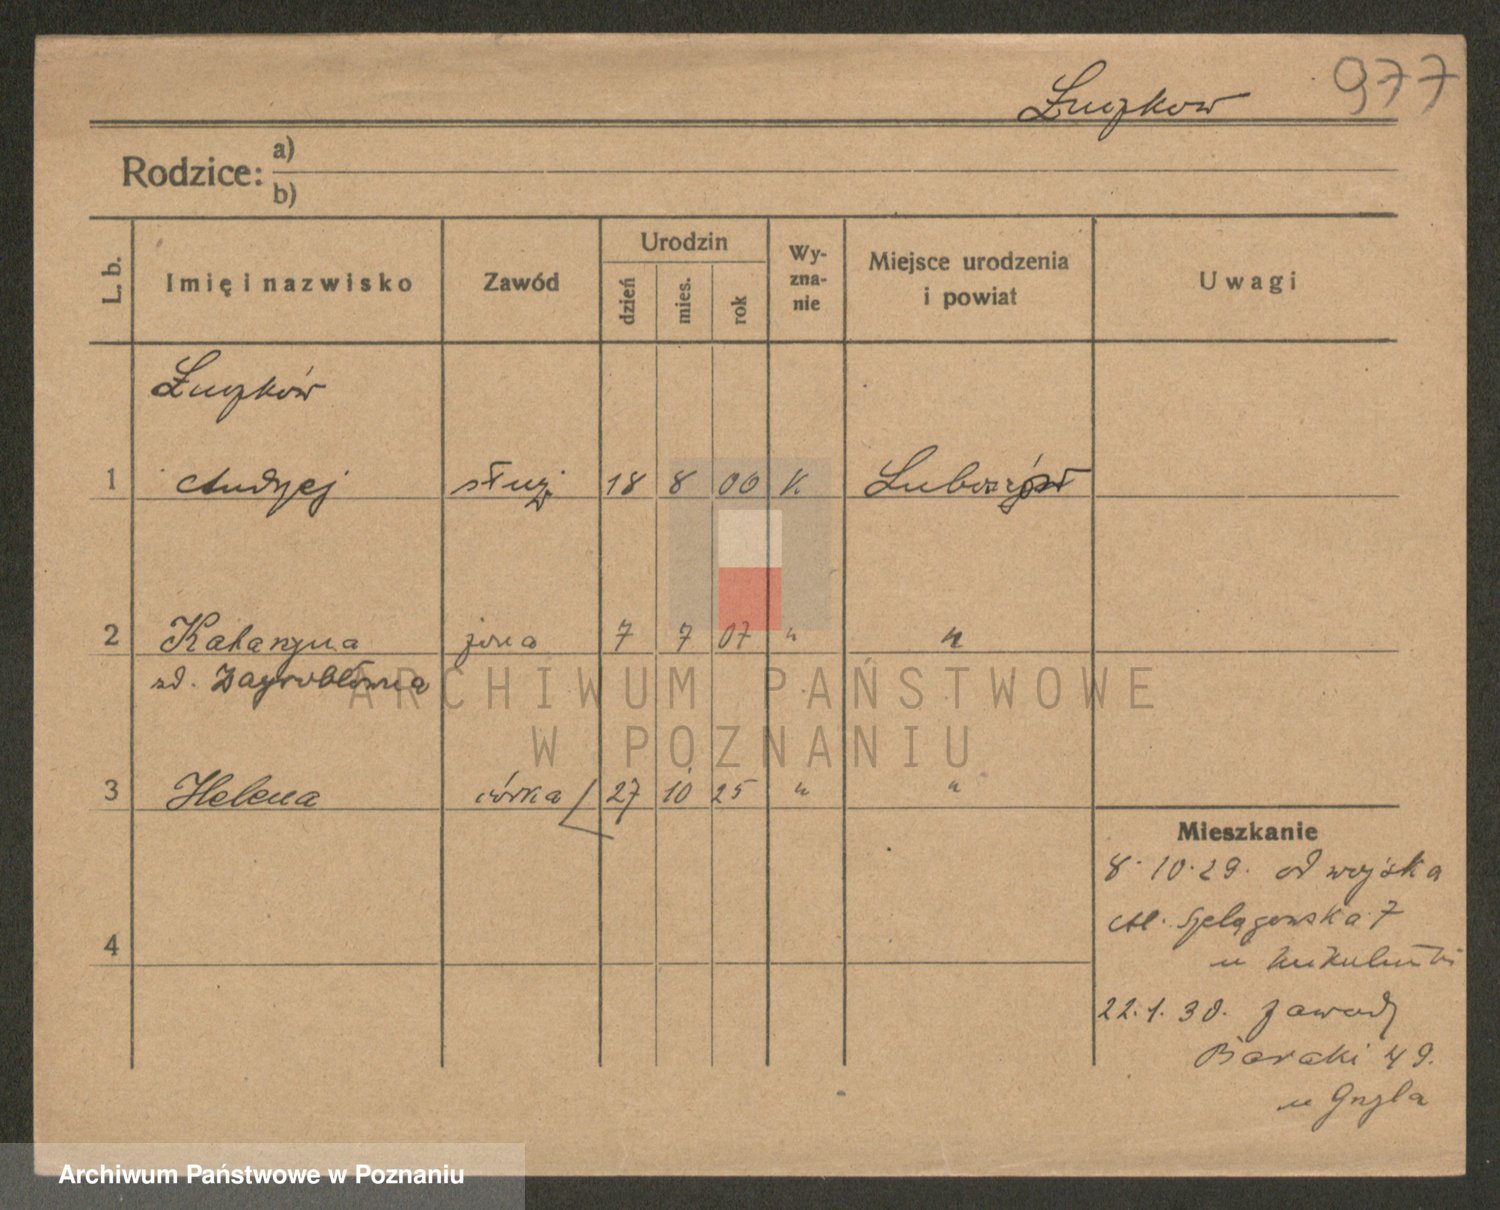 977
Łuczkow
Rodzice: a)
b)
L. b.
Imię i nazwisko
Zawód
Urodzin
dzień
mies.
rok
Wy-
zna-
nie
Miejsce urodzenia
i powiat
Uwagi
Łuczków
1 Andrzej służ 18 8 06 K
2 Katarzyna żona 7 7 07 " "
zd. Zagrobłówna
3 Helena córka 27 10 25 " "
4
Mieszkanie
8.10.29. od wojska
Szelągowska 7
u
22.1.30. Zawady
Baraki 49.
u Gryla
ARCHIWUM PAŃSTWOWE
W POZNANIU
Archiwum Państwowe w Poznaniu